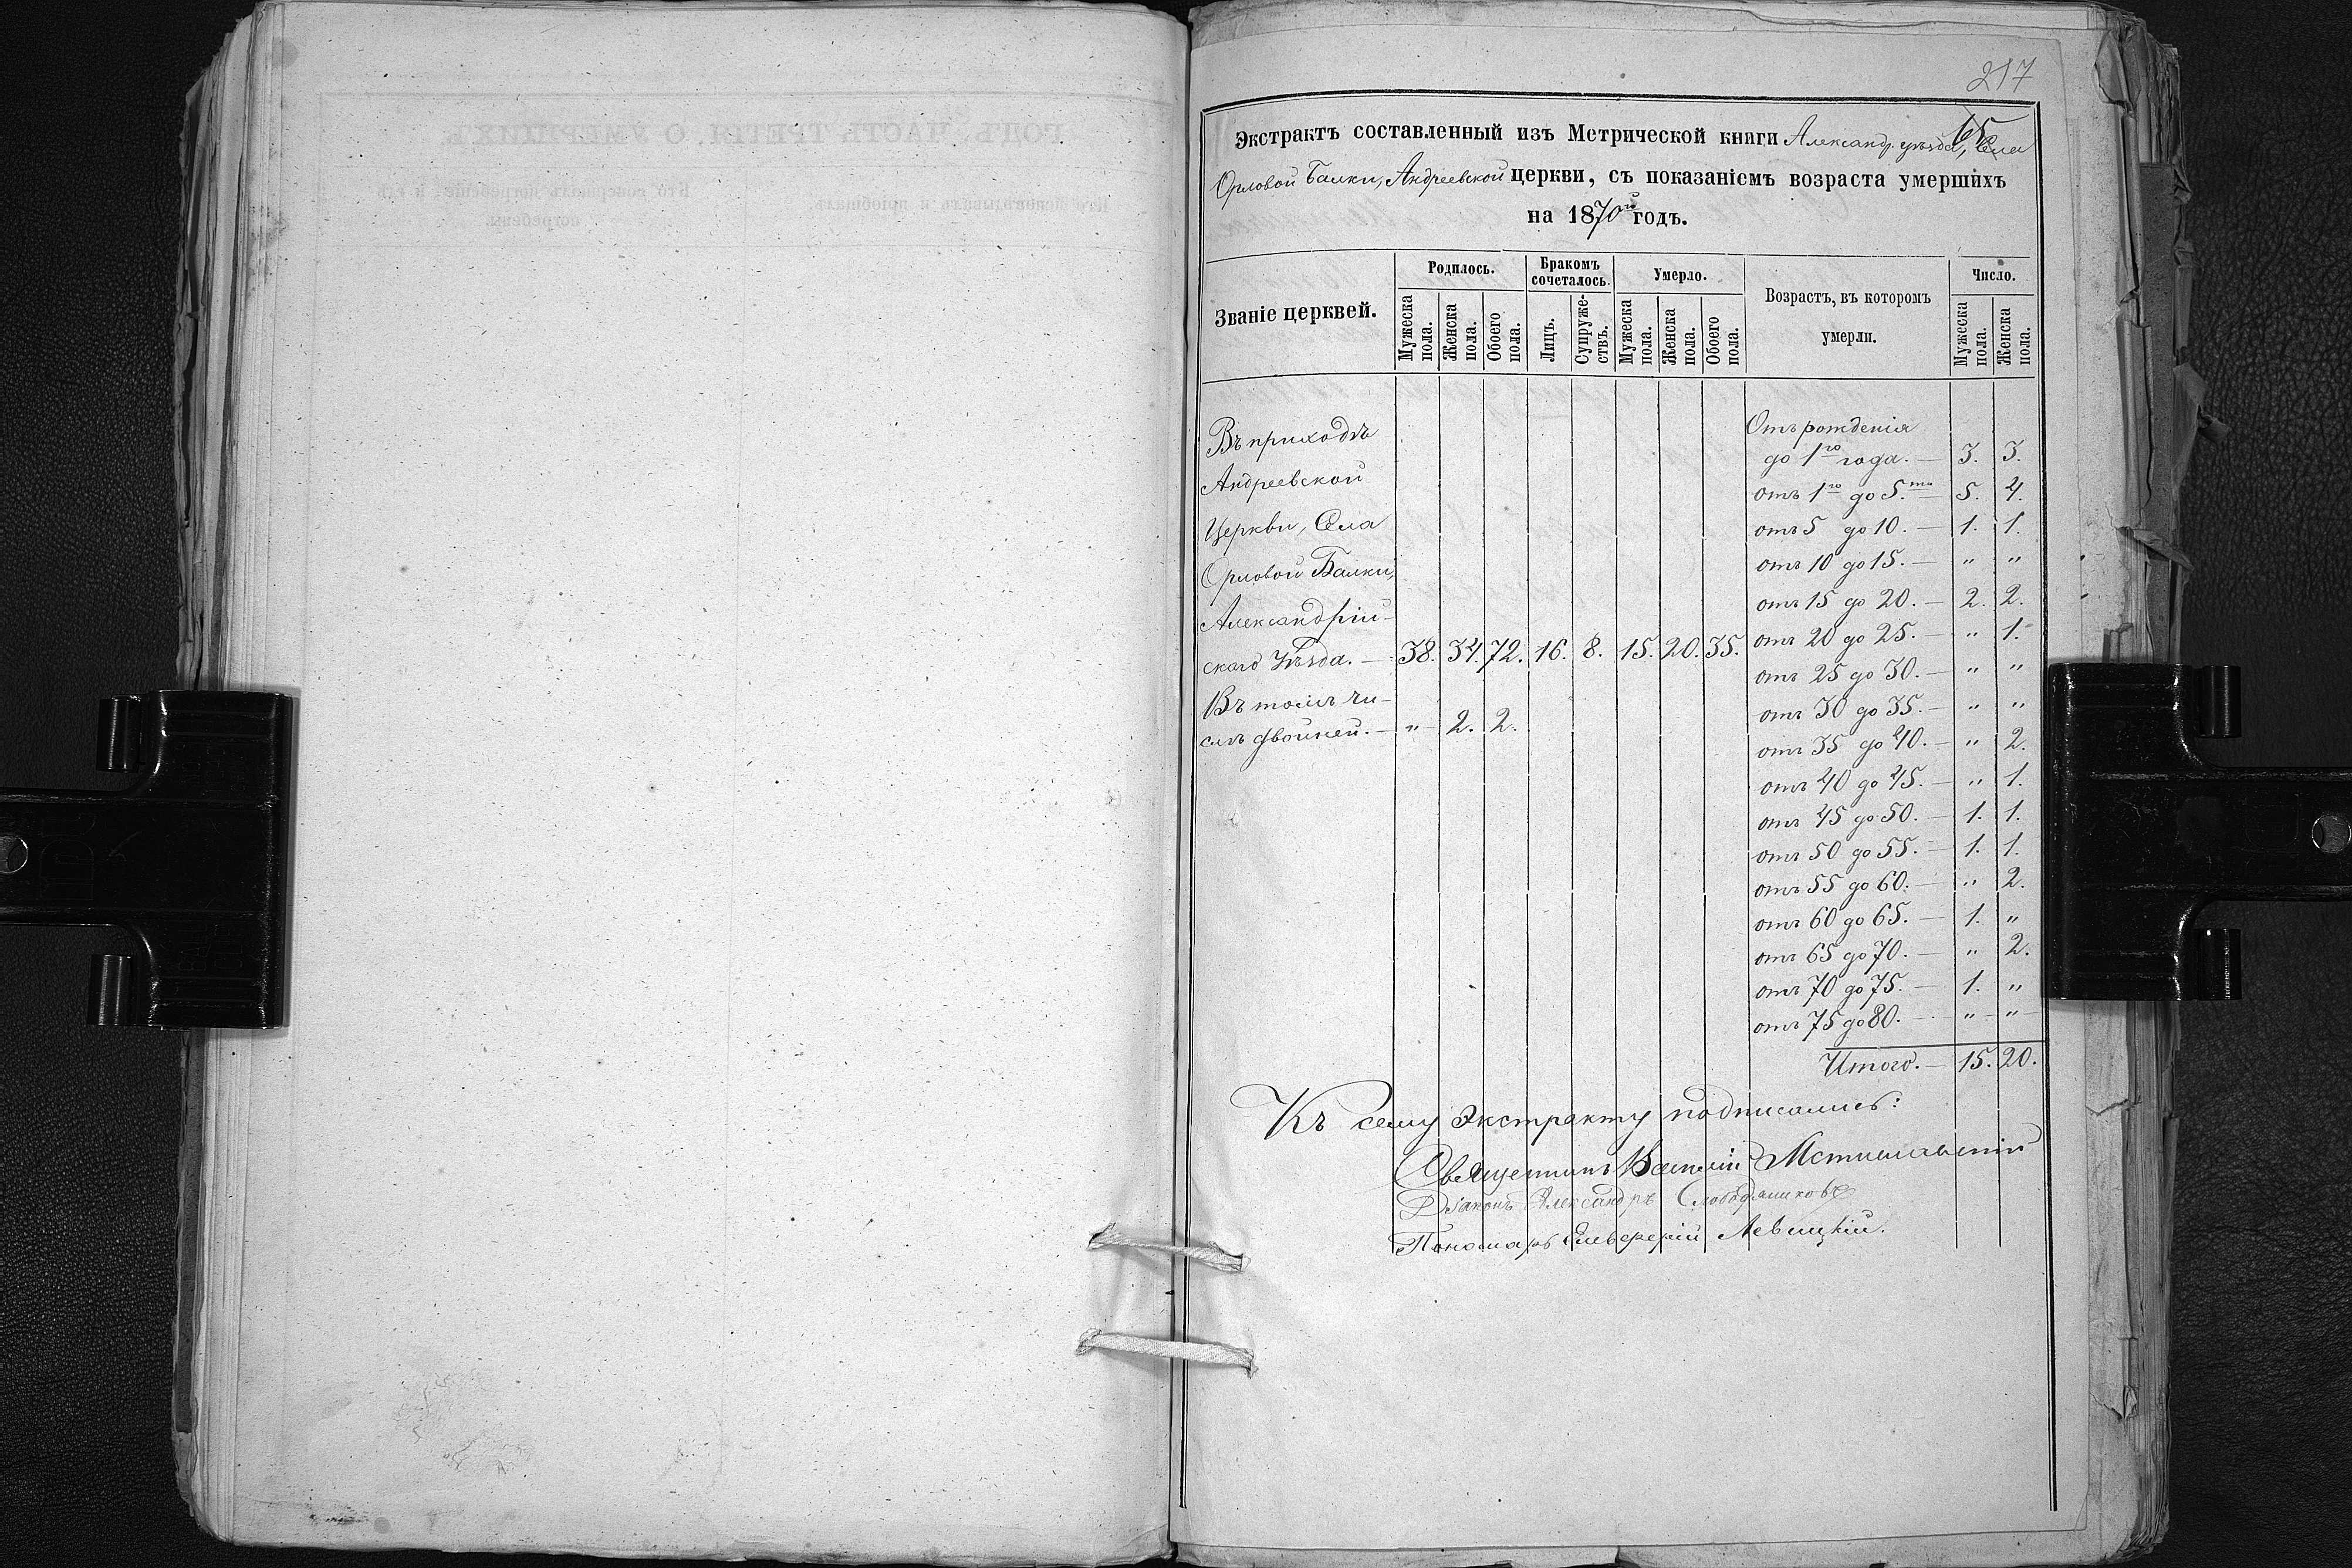 217
65
Экстрактъ составленный изъ Метрической книги Александр. уѣзда, Села
Орловой Балки, Андреевской церкви, съ показаніемъ возраста умершихъ
на 1870й годъ.
Званіе церквей. Родилось. Бракомъ сочеталось. Умерло. Возрастъ, въ которомъ умерли. Число.
Мужеска пола. Женска пола. Обоего пола. Лицъ. Супружествъ. Мужеска пола. Женска пола. Обоего пола. Мужеска пола. Женска пола.
Въ приходѣ
Андреевской
Церкви, Села
Орловой Балки,
Александрій-
скаго Уѣзда. — 38. 34. 72. 16. 8. 15. 20. 35.
Въ томъ чи-
слѣ двойней. — „ — 2. 2.
Отъ рожденія
до 1го года. — 3. 3.
отъ 1го до 5.ти — 5. 4.
отъ 5 до 10. — 1. 1.
отъ 10 до 15. — „ „
отъ 15 до 20. — 2. 2.
отъ 20 до 25. — „ 1.
отъ 25 до 30. — „ „
отъ 30 до 35. — „ „
отъ 35 до 40. — „ 2.
отъ 40 до 45. — „ 1.
отъ 45 до 50. — 1. 1.
отъ 50 до 55. — 1. 1.
отъ 55 до 60. — „ 2.
отъ 60 до 65. — 1. „
отъ 65 до 70. — „ 2.
отъ 70 до 75. — 1. „
отъ 75 до 80. — „ — „ —
Итого. — 15. 20.
Къ сему Экстракту подписались:
Священникъ Василій Мстиславскій
Діаконъ Александръ Слободяниковъ
Пономарь Елевферій Левицкій.